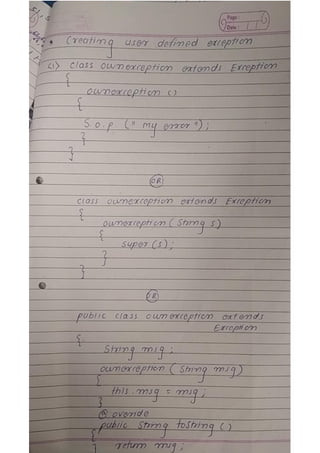 Page :
Date :
• Creating user defined exception
(1) class ownexception extends Exception
{
ownexception ()
{
S.o.p. ("my error");
}
}
OR
class ownexception extends Exception
{
ownexception (String s)
{
super (s);
}
}
OR
public class ownexception extends
Exception
{
String msg ;
ownexception ( String msg)
{
this.msg = msg;
}
@ overide
public String toString ()
{
return msg;
}